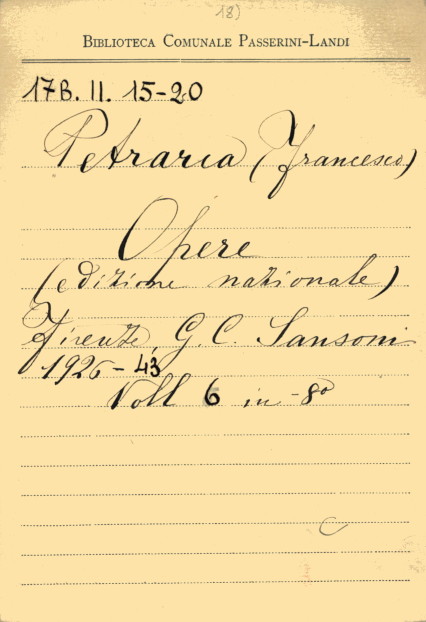 18)
BIBLIOTECA COMUNALE PASSERINI-LANDI
17B. II. 15-20
Petrarca (Francesco)
Opere
(edizione nazionale)
Firenze, G. C. Sansoni
1926-43
Voll 6 in -8º